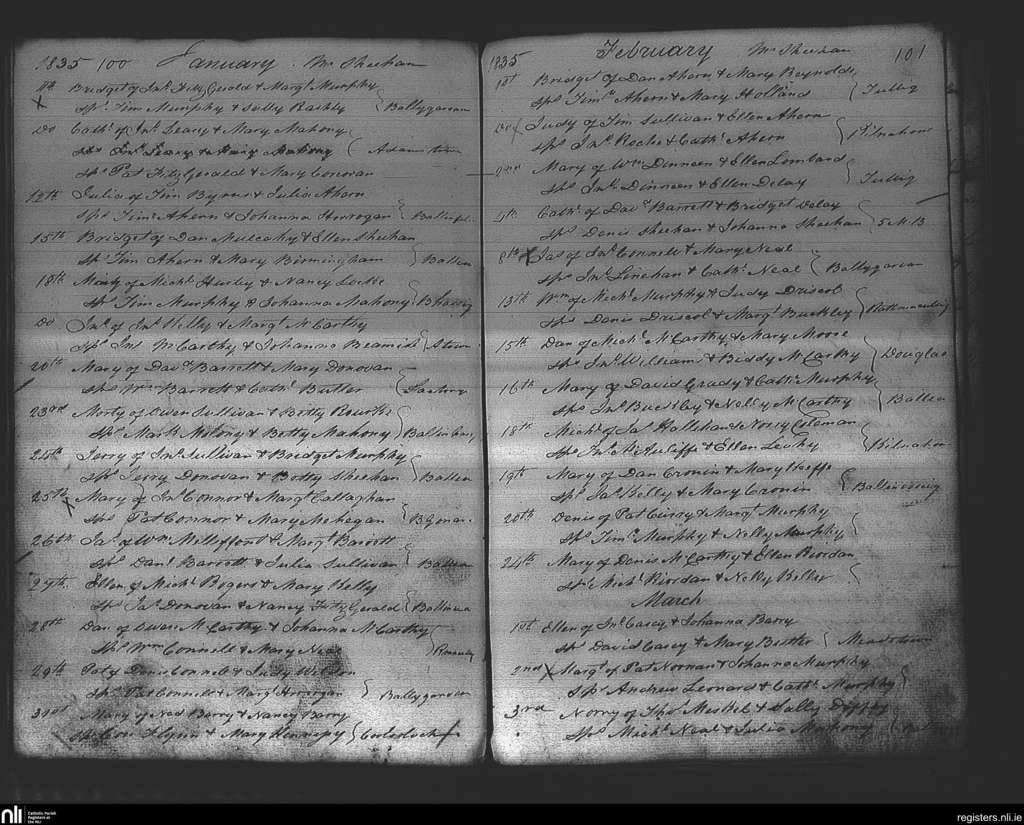 1835 100 January Mr Sheehan
11th Bridget of Jas. FitzGerald & Margt. Murphy
X Sps. Tim Murphy & Sally Rashly Ballygarvan
Do Cathe. of Jno. Leary & Mary Mahony
Sps Jno. Leary & Mary Mahony Adamstown
Sps Pat FitzGerald & Mary Conovan
12th Julia of Tim Byrne & Julia Ahern
Sps Timy. Ahern & Johanna Horrogan
15th Bridget of Dan Mulcahy & Ellen Sheehan
Sps Tim Ahern & Mary Birmingham Ballin
18th Mary of Michl. Hurly & Nancy Locke
Sps Tim Murphy & Johanna Mahony
Do Jno. of Jno. Kelly & Margt. McCarthy
Sps Jno McCarthy & Johanna Beamish
20th Mary of Davd. Barrett & Mary Donovan
Sps Wm. Barrett & Cathe. Butler Factory
23rd Morty of Owen Sullivan & Betty Rourke
Sps Mark Molony & Betty Mahony
24th Jerry of Jno. Sullivan & Bridget Murphy
Sps Jerry Donovan & Betty Sheehan Ballin
25th X Mary of Jno. Connor & Margt. Callaghan
Sps Pat Connor & Mary Mehegan
26th Jas. of Wm. Melleffont & Margt. Barrett
Sps Danl. Barrett & Julia Sullivan
27th Ellen of Michl. Rogers & Mary Kelly
Sps Jas. Donovan & Nancy FitzGerald
28th Dan of Owen McCarthy & Johanna McCarthy
Sps Wm Connell & Mary Neal
29th Pat of Denis Connell & Judy Wilson
Sps Pat Connell & Margt. Horrogan Ballygarvan
30th Mary of Ned Barry & Nancy Barry
Sps Con Flynn & Mary Hennessy
1835 February Mr Sheehan 101
1st Bridget of Dan Ahern & Mary Reynolds
Sps Timy. Ahern & Mary Holland Tubbig
Do Judy of Tim Sullivan & Ellen Ahern
Sps Jas. Roche & Cathe. Ahern
2nd Mary of Wm. Dinneen & Ellen Lombard
Sps Jno. Dinneen & Ellen Delay Tubbig
4th Cathe. of Davd. Barrett & Bridget Delay
Sps Denis Sheehan & Johanna Sheehan
8th X Jas of Jno. Connell & Mary Neal
Sps Jno. Linehan & Cathe. Neal Ballygarvan
13th Wm of Michl. Murphy & Judy Driscol
Sps Denis Driscol & Margt. Buckley
15th Dan of Michl. McCarthy & Mary Morse
Sps Jno. Williams & Biddy McCarthy Douglas
16th Mary of David Grady & Cathe. Murphy
Sps Jno. Buckley & Nelly McCarthy Ballin
18th Michl. of Jas. Hallahan & Norry Coleman
Sps Jno. McAuliffe & Ellen Leahy
19th Mary of Dan Cronin & Mary Keeffe
Sps Jas. Kelly & Mary Cronin
20th Denis of Pat Curry & Margt. Murphy
Sps Timy. Murphy & Nelly Murphy
24th Mary of Denis McCarthy & Ellen Riordan
Sps Michl. Riordan & Nelly Kelher
March
1st Ellen of Jno. Casey & Johanna Barry
Sps David Casey & Mary Butler Meadstown
2nd X Margt. of Pat Noonan & Johanna Murphy
Sps Andrew Leonard & Cathe. Murphy
3rd Norry of Thos. & Sally
Sps Michl. Neal & Julia Mahony
nli Catholic Parish
Registers at
the NLI
registers.nli.ie